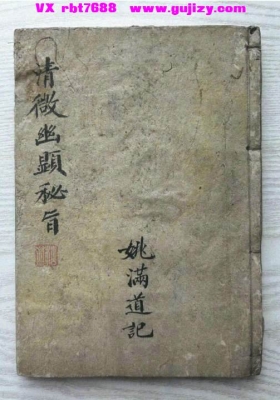 VX rbt7688   www.gujizy.com
清微幽顯秘旨
姚滿道記